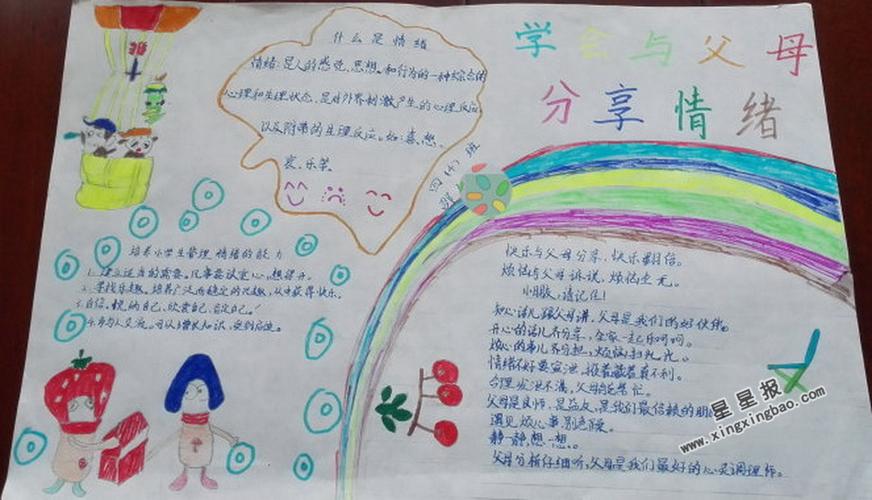 学会与父母
分享情绪
什么是情绪
情绪:是人的感觉、思想、和行为的一种综合的
心理和生理状态,是对外界刺激产生的心理反应,
以及附带的生理反应。如:喜、想、
哀、乐等。
四(4)班
培养小学生管理情绪的能力
1.建立适当的需要。凡事要
2.寻找乐趣。培养广泛而稳定的兴趣,从中获得快乐。
3.自信。悦纳自己、欣赏自己、肯定自己。
4.多与人交流。可以增长知识,受到启迪。
快乐与父母分享,快乐翻倍。
烦恼与父母诉说,烦恼全无。
小朋友,请记住!
知心话儿跟父母讲,父母是我们的好伙伴。
开心的话儿齐分享,全家一起乐呵呵。
烦心的事儿齐分担,烦恼一扫光光。
情绪不好要宣泄,掖着藏着最不利。
合理发泄不满,父母能帮忙。
父母是良师,是益友,是我们最信赖的朋
遇见烦心事别急躁。
静一静,想一想。
父母分析仔细听,父母是我们最好的心灵调理师。
星星报
www.xingxingbao.com